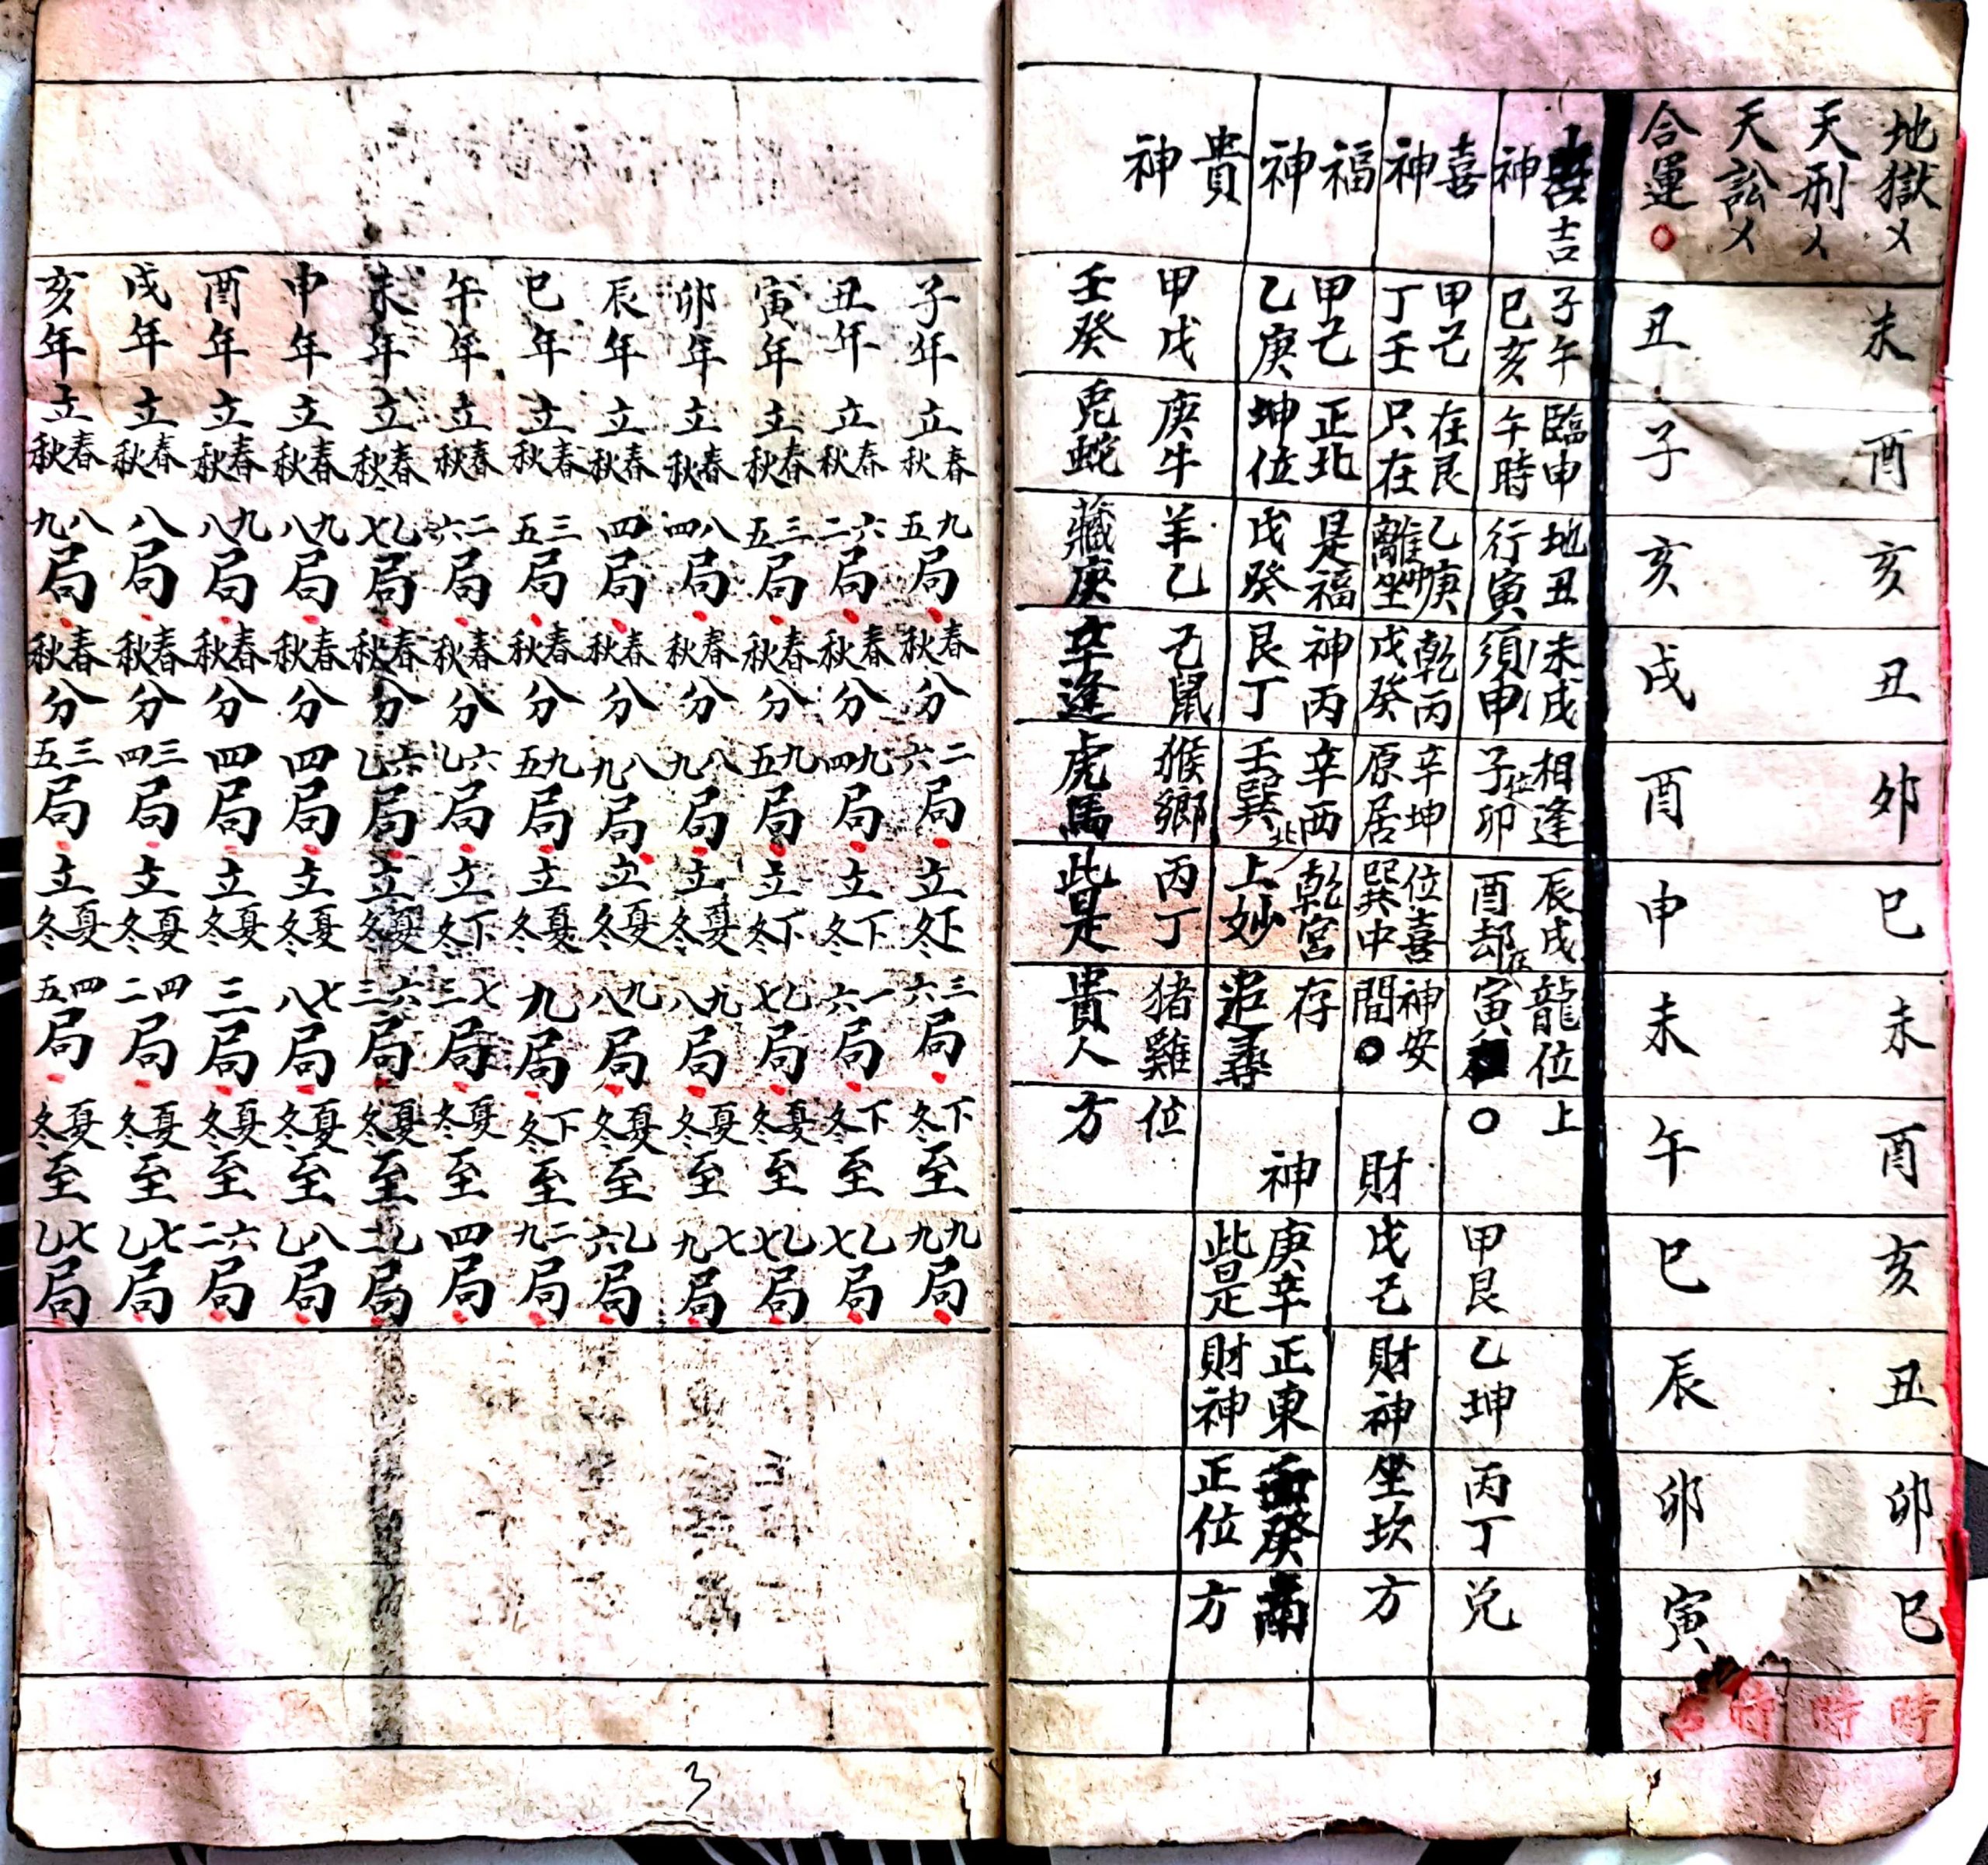 地獄〤未酉亥丑卯巳未酉亥丑卯巳時
天刑〤時
天訟〤時
合運○丑子亥戌酉申未午巳辰卯寅
吉神
子午臨申地丑未戌相逢辰戌龍位上
巳亥午時行寅須申子位卯酉却在寅○
喜神
甲己在艮乙庚乾丙辛坤位喜神安
丁壬只在離中坐戊癸原居巽中間○
福神
甲己正北是福神丙辛西北乾宮存
乙庚坤位戊癸艮丁壬巽上妙追尋
貴神
甲戊庚牛羊乙己鼠猴鄉丙丁猪雞位
壬癸兎蛇藏庚辛逢虎馬此是貴人方
財神
甲艮乙坤丙丁兌
戊己財神坐坎方
庚辛正東壬癸南
此是財神正位方
子年立春秋九五局春秋分二六局立下冬三六局下冬至九九局
丑年立春秋六二局春秋分九四局立下冬一六局下冬至乙七局
寅年立春秋三五局春秋分九五局立下冬乙七局夏冬至乙七局
卯年立春秋八四局春秋分八九局立夏冬九八局夏冬至七九局
辰年立春秋四局春秋分八九局立夏冬九八局夏冬至乙六局
巳年立春秋三五局春秋分九五局立夏冬九局下冬至二九局
午年立春秋二六局春秋分六乙局立下冬七三局夏冬至四局
未年立春秋乙七局春秋分六乙局立夏冬六三局夏冬至乙二局
申年立春秋九八局春秋分四局立夏冬七八局夏冬至八乙局
酉年立春秋九八局春秋分四局立夏冬三局夏冬至六二局
戌年立春秋八局春秋分三四局立夏冬四二局夏冬至七乙局
亥年立春秋八九局春秋分三五局立夏冬四五局夏冬至七乙局
3